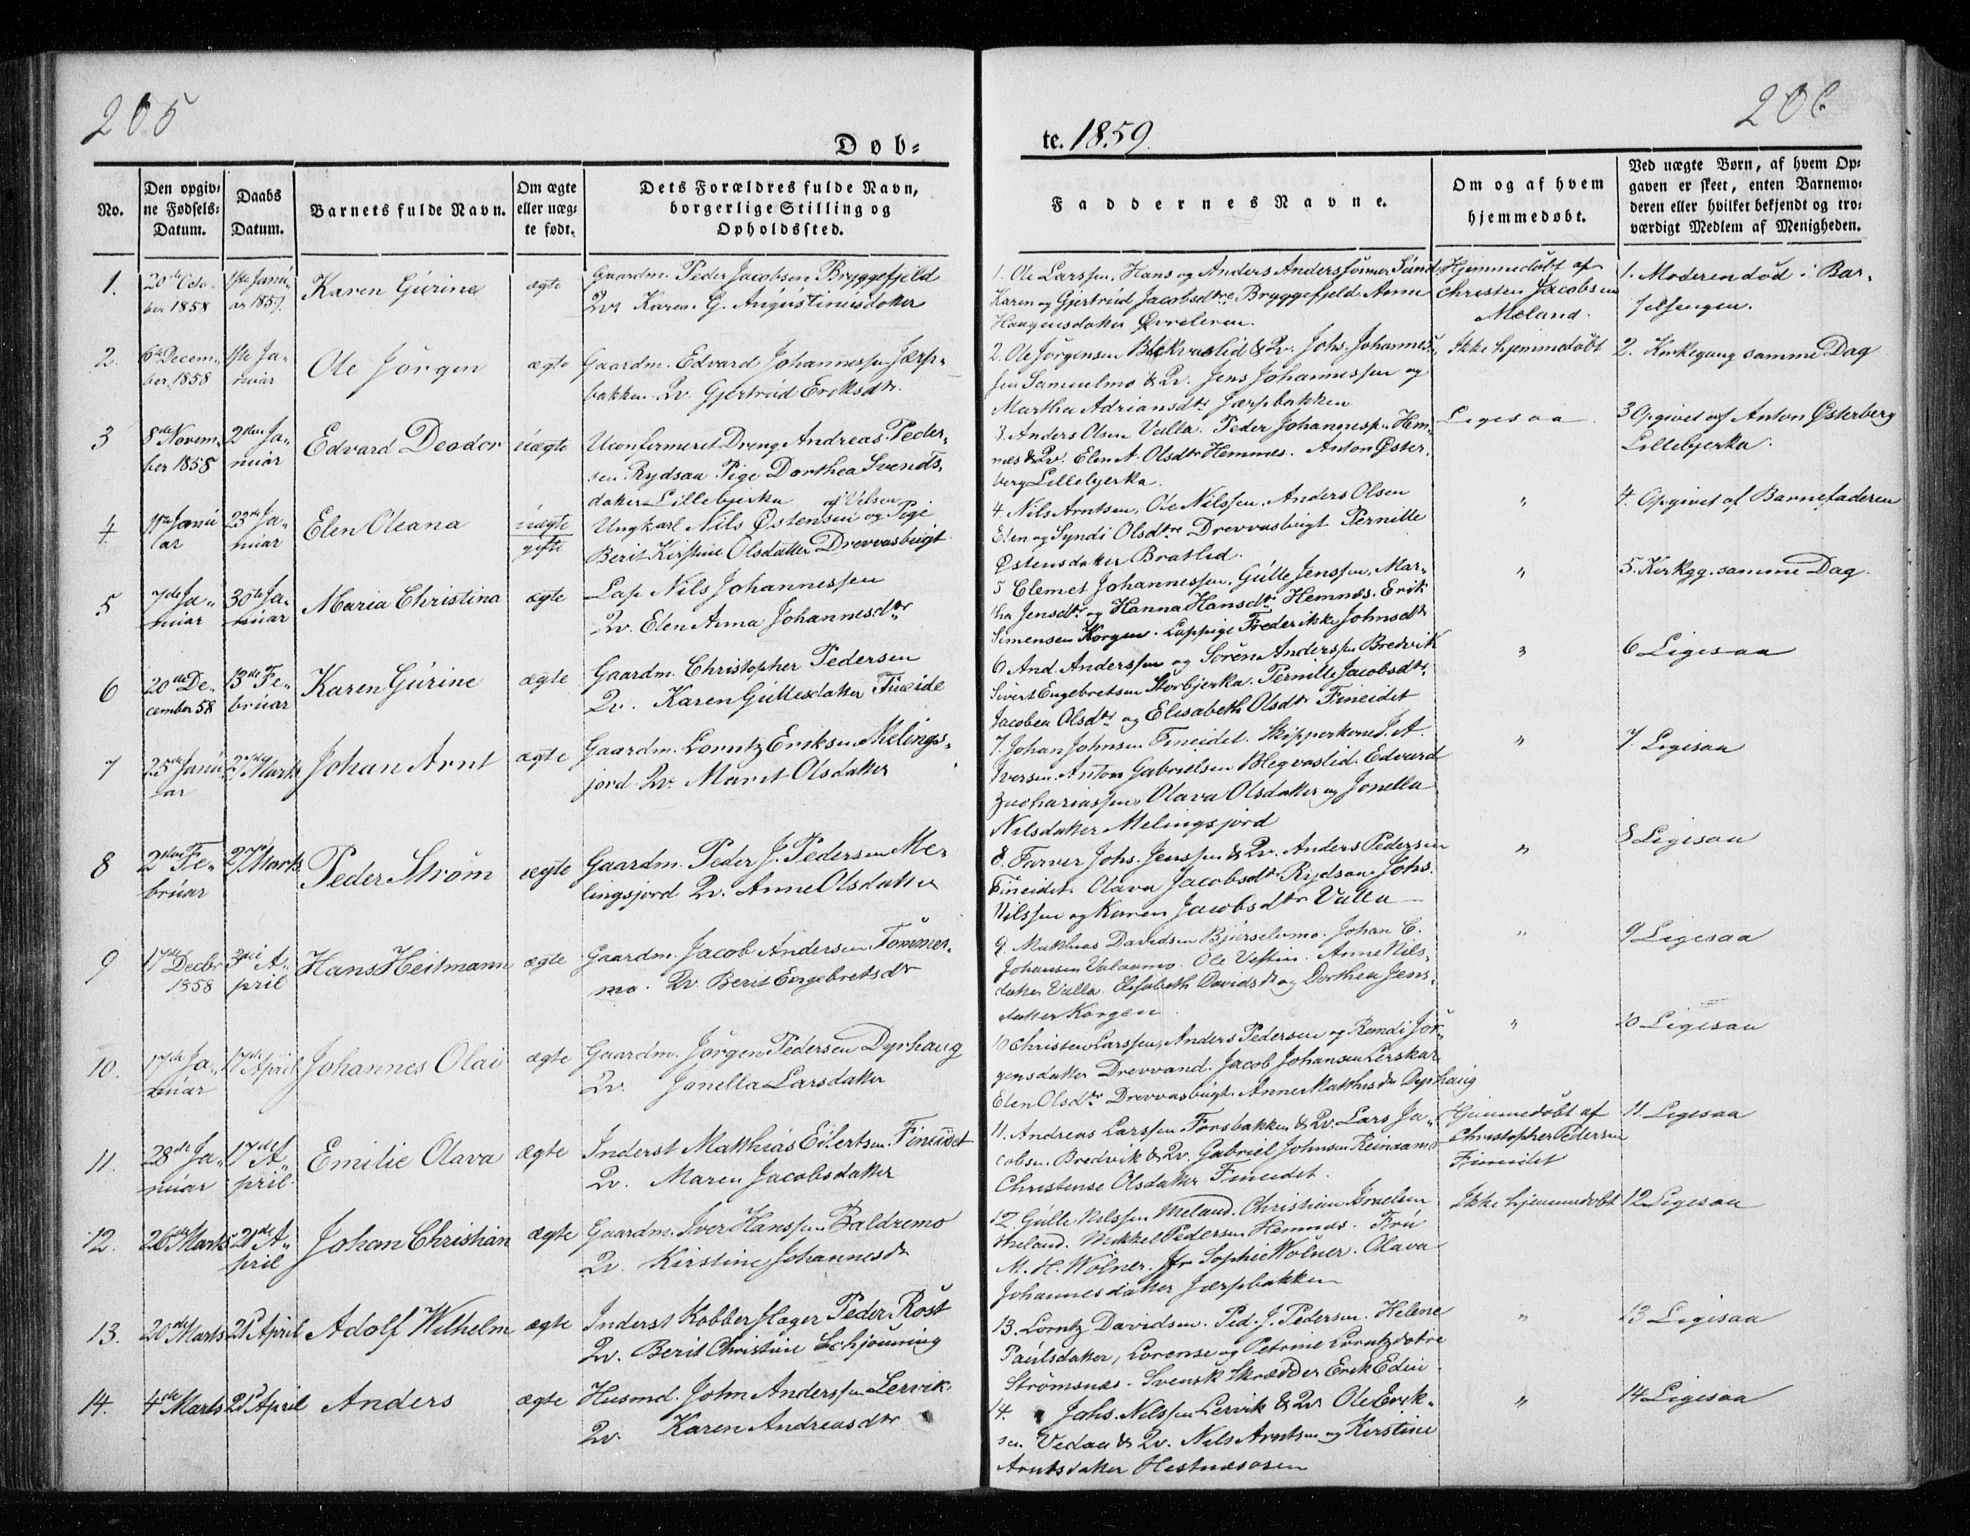 205
206
Døb-
te. 1859.
No.
Den opgiv-
ne Fødsels-
Datum.
Daabs
Datum.
Barnets fulde Navn.
Om ægte
eller uæg-
te født.
Dets Forældres fulde Navn,
borgerlige Stilling og
Opholdssted.
Faddernes Navne.
Om og af hvem
hjemmedøbt.
Ved uægte Børn, af hvem Op-
gaven er skeet, enten Barnemo-
deren eller hvilket bekjendt og tro-
værdigt Medlem af Menigheden.
1.
20de Octo-
ber 1858
1ste Janu-
ar 1859.
Karen Gurine
ægte
Gaardm. Peder Jacobsen Bryggefjeld
Qv. Karen G. Augustinusdatter
1. Ole Larssen, Hans og Anders Anderssønner Sund
Karen og Gjertrud Jacobsdtre Bryggefjeld Anne
Haagensdatter Øvreleren.
Hjemmedøbt af
Christen Jacobsen
Meland.
1. Moderen død i Bar-
selsengen.
2.
6te Decem-
ber, 1858
1ste Ja-
nuar
Ole Jørgen
ægte
Gaardm. Edvard Johannessen Jærp-
bakken Qv. Gjertrud Eriksdtr.
2. Ole Jørgensen Blekvaslid & Qv. Johs. Johannes-
sen Samuelmo & Qv. Jens Johannessen og
Martha Adriansdtr Jærpbakken
Ikke hjemmedøbt
2. Kirkegang samme Dag
3
8de Novem-
ber 1858
2den Ja-
nuar
Edvard Deodor
uægte
Uconfirmeret Dreng Andreas Peder-
sen Rydsaa Pige Dorthea Svends-
datter Lillebjerka
3. Anders Olsen Valla. Peder Johannesen Hem-
næs & Qv. Elen A. Olsdtr Hemnes. Anton Øster-
berg Lillebjerka.
Ligesaa
3 Opgivet af Anton Østerberg
Lillebjerka.
4.
11te Janu
ar
23de Ja-
nuar
Elen Oleana
uægte
gifte
af Velsen
Ungkarl Nils Østensen og Pige
Berit Kirstine Olsdatter Drevvasbugt
4 Nils Arntsen, Ole Nilssen, Anders Olsen
Elen og Syndi Olsdtre Drevvasbugt Pernille
Østensdatter Bratlid.
"
4. Opgivet af Barnefaderen
5
7de Ja-
nuar
30te Ja-
nuar
Maria Christina
ægte
Lap Nils Johannessen
Qv. Elen Anna Johannesdtr
5 Clemet Johannessen, Gulle Jenssen, Mar-
tha Jensdtr og Hanna Hansdtr Hemnes. Erik
Simensen Korgen. Lappige Frederikke Johnsdtr
"
5. Kirkgg. samme Dag.
6
20de De-
cember 58
13de Fe-
bruar
Karen Gurine
ægte
Gaardm. Christopher Pedersen
Qv. Karen Gullesdatter Fineide
6 And. Anderssen og Søren Anderssen Bredvik
Sivert Engebretsen Storbjerka. Pernille Jacobsdtr.
Jacobea Olsdtr og Elisabeth Olsdtr Fineidet
"
6 Ligesaa
7
25de Janu
ar
27de Marts
Johan Arnt
ægte
Gaardm. Lorntz Eriksen Melings-
jord Qv. Marit Olsdatter
7. Johan Johnsen Fineidet. Skipperkone J. A.
Iversen. Anton Gabrielsen Blegvaslid. Edvard
Zachariassen, Olava Olsdatter og Jonella
Nilsdatter Melingsjord
"
7. Ligesaa
8
2den Fe-
bruar
27 Marts
Peder Strøm
ægte
Gaardm. Peder J. Pedersen Me-
lingsjord Qv. Anne Olsdatter
8. Farver Johs. Jenssen & Qv. Anders Pedersen
Fineidet. Olava Jacobsdtr Rydsaa. Johs.
Nilssen og Karen Jacobsdtr Valla
"
8 Ligesaa
9
17de Decbr
1858
3die A-
pril
Hans Heitmann
ægte
Gaardm. Jacob Andersen Tømmer-
mo. Qv. Berit Engebretsdtr
9. Mathias Davidsen Bjurselvmo. Johan C.
Johansen Valaamo. Ole Vestin. Anne Nils-
datter Valla. Elisabeth Davidsdtr og Dorthea Jens-
datter Korgen.
"
9 Ligesaa
10.
17de Ja-
nuar
17de April
Johannes Olai
ægte
Gaardm. Jørgen Pedersen Dyrhaug
Qv. Jonella Larsdatter
10 Christen Larssen, Anders Pedersen og Remdi Jør-
gensdatter Drevvand. Jacob Johansen Lerskar
Elen Olsdtr Drevvasbugt. Anne Mathisdtr Dyrhaug
"
10 Ligesaa
11.
28de Ja-
nuar
17de A-
pril
Emilie Olava
ægte
Inderst Matthias Eilertsen Fineidet
Qv. Maren Jacobsdatter
11. Andreas Larssen Forsbakken & Qv. Lars Ja-
cobsen Bredvik & Qv. Gabriel Johnsen Reinsamo
Christense Olsdatter Fineidet.
Hjemmedøbt af
Christopher Pedersen
Fineidet
11. Ligesaa
12.
26de Marts
21de A-
pril
Johan Christian
ægte
Gaardm. Iver Hanssen Baldremo
Qv. Kirstine Johannesdtr
12. Gulle Nilssen Meland. Christian Israelsen
Meland. Mikkel Pedersen Hemnes. Fru
M. H. Wolner. Jfr Sophie Wolner. Olava
Johannesdatter Jærpbakken
Ikke hjemmedøbt
12 Ligesaa
13.
20de Marts
21 April
Adolf Wilhelm
ægte
Inderst Kobberslager Peder Rost
Qv. Berit Christine Schjønning
13. Lorntz Davidsen. Ped. J. Pedersen. Helene
Paulsdatter, Lorense og Petrine Lorntzdøtre
Strømsnæs. Svensk Skrædder Erik Edin
"
13 Ligesaa
14.
4de Marts
21 April
Anders
ægte
Husmd. John Anderssen Lervik
Qv. Karen Andreasdtr
14. Johs. Nilssen Lervik & Qv. Ole Erik-
sen Vedaa & Qv. Nils Arntsen og Kirstine
Arntsdatter Hestnæsosen
"
14 Ligesaa